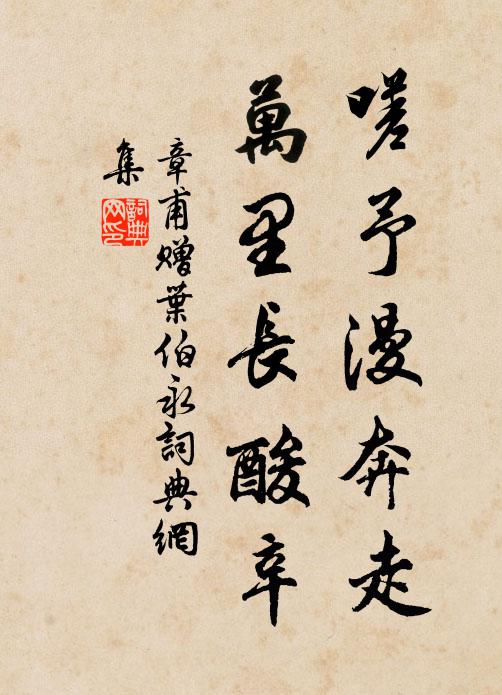 嗟予漫奔走
萬里長酸辛
章甫贈葉伯永詞典網
集
詞典
网印